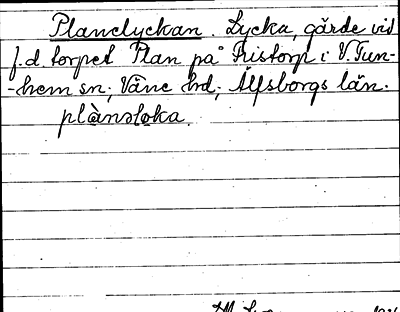 Planelyckan. Lycka, gärde vid
f.d. torpet Plan på Fristorp i V. Tun-
-hem sn; Väne hd; Älfsborgs län.
plànəlɔka.